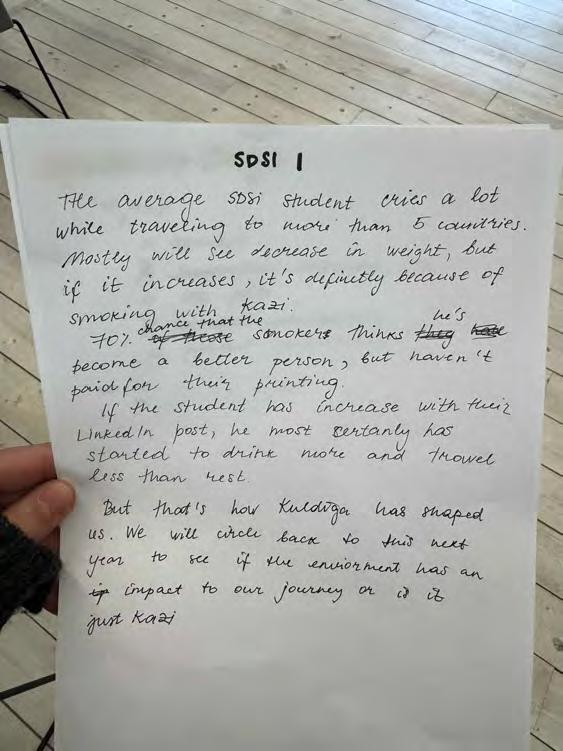 SDSI 1
The average SDSi student cries a lot
while traveling to more than 5 countries.
Mostly will see decrease in weight, but
if it increases, it's definetly because of
smoking with Kazi.
70% chance that the smokers thinks he's
become a better person, but haven't
paid for their printing.
If the student has increase with their
LinkedIn post, he most sertanly has
started to drink more and trowel
less than rest.
But that's how Kuldīga has shaped
us. We will circle back to this next
year to see if the enviorment has an
impact to our journey or is it
just Kazi